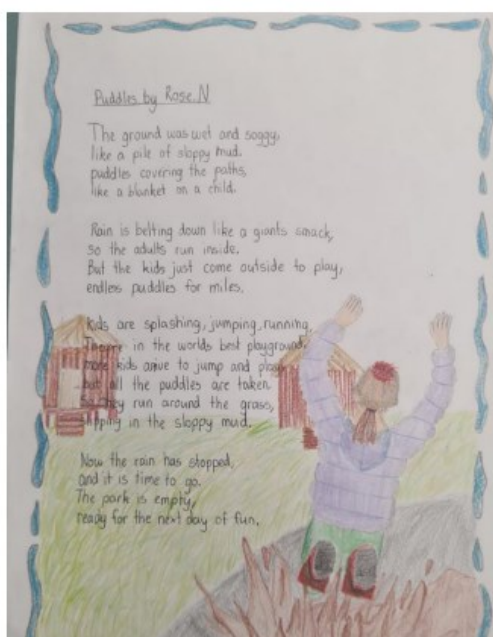 Puddles by Rose N
The ground was wet and soggy,
like a pile of sloppy mud.
puddles covering the paths,
like a blanket on a child.
Rain is belting down like a giants smack,
so the adults run inside.
But the kids just come outside to play,
endless puddles for miles.
Kids are splashing, jumping, running,
in the worlds best playground,
more kids arrive to jump and play
but all the puddles are taken.
So they run around the grass,
slipping in the sloppy mud.
Now the rain has stopped,
and it is time to go.
The park is empty,
ready for the next day of fun.